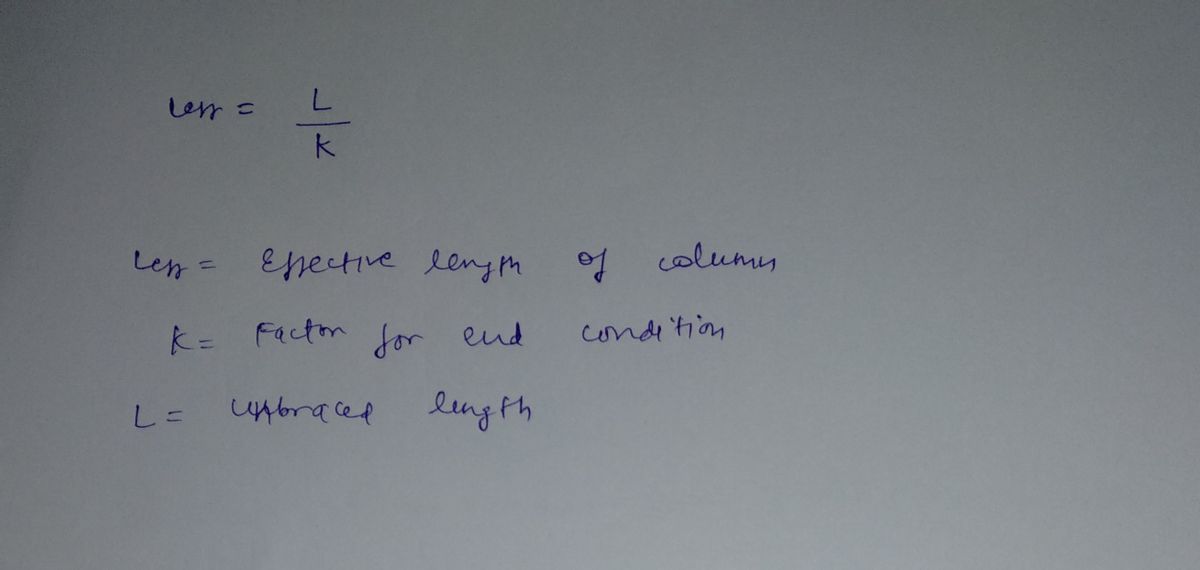 Leff = L
K
Leff = Effective length of column
K = Factor for end condition
L = Unbraced length